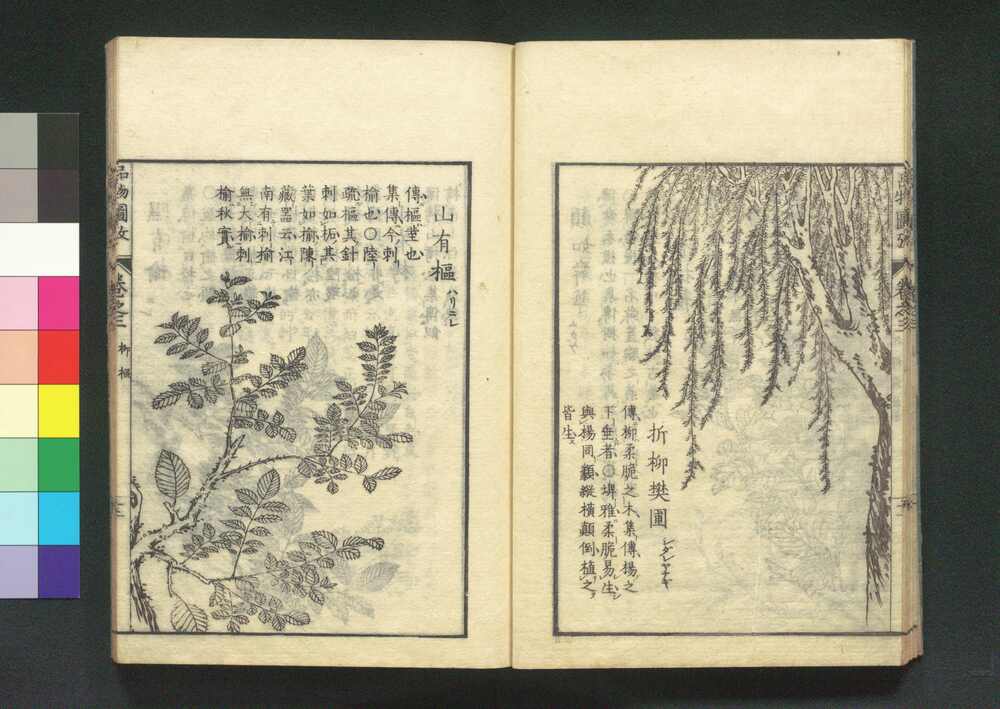 折柳樊圃 シダレヤナキ
傳柳柔脆之木集傳楊之
下垂者〇埤雅柔脆易生
與楊同類縱橫顛倒植之
皆生
山有樞 ハリニレ
傳樞荎也
集傳今刺
榆也〇陸
疏樞其針
刺如柘其
葉如榆陳
藏器云江
南有刺榆
無大榆刺
榆秋實
品物圖攷
卷之三
柳 樞